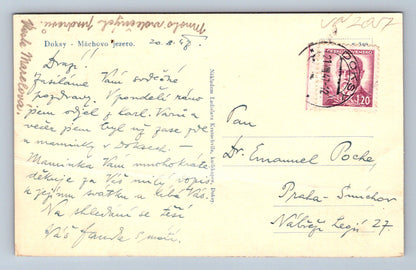 Mnoho srdečných pozdravů
Vlasta Marešova.
Doksy - Máchovo jezero.
20.8.48.
Drazí.
Zasíláme Vám srdečné
pozdravy. V pondělí ráno
jsem odjel z Karl. Varů a
večer jsem byl už zase zde
u maminky v Doksech. —
Maminka Vám mnohokráte
děkuje za Váš milý dopis
k jejímu svátku a líbá Vás.
Na shledání se těší
Váš
Nákladem Ladislava
Doksy
DOKSY
1.20
Pan
Dr. Emanuel Poche,
Praha-Smíchov
Nábřeží Legií 27